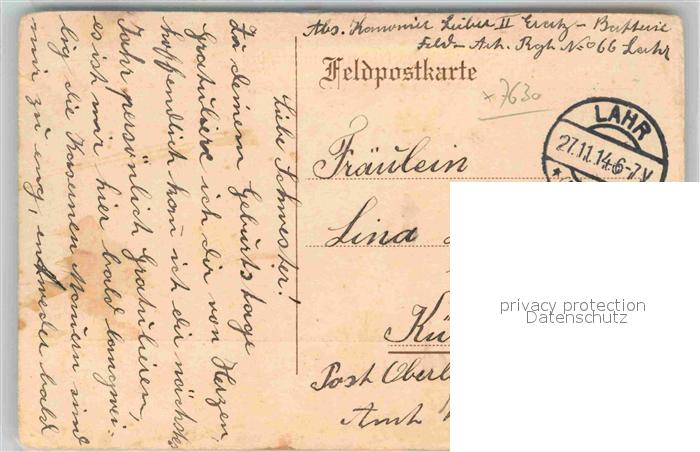 Abs. Kanonier Leiber II Ersatz-Batterie
Feld-Art. Rgt. No 66 Lahr
Feldpostkarte
+7630
LAHR
27.11.14.6-7.V
Fräulein
Lina
Kü
Post Oberl
Amt
privacy protection
Datenschutz
Liebe Schwester!
Zu deinem Geburtstage
Gratuliere ich dir von Herzen,
hoffentlich kan ich dir nächstes
Jahr persönlich Gratulieren,
es ist mir hier bald langwei-
lig die Kasernen Mauern sind
mir zu eng, entweder bald